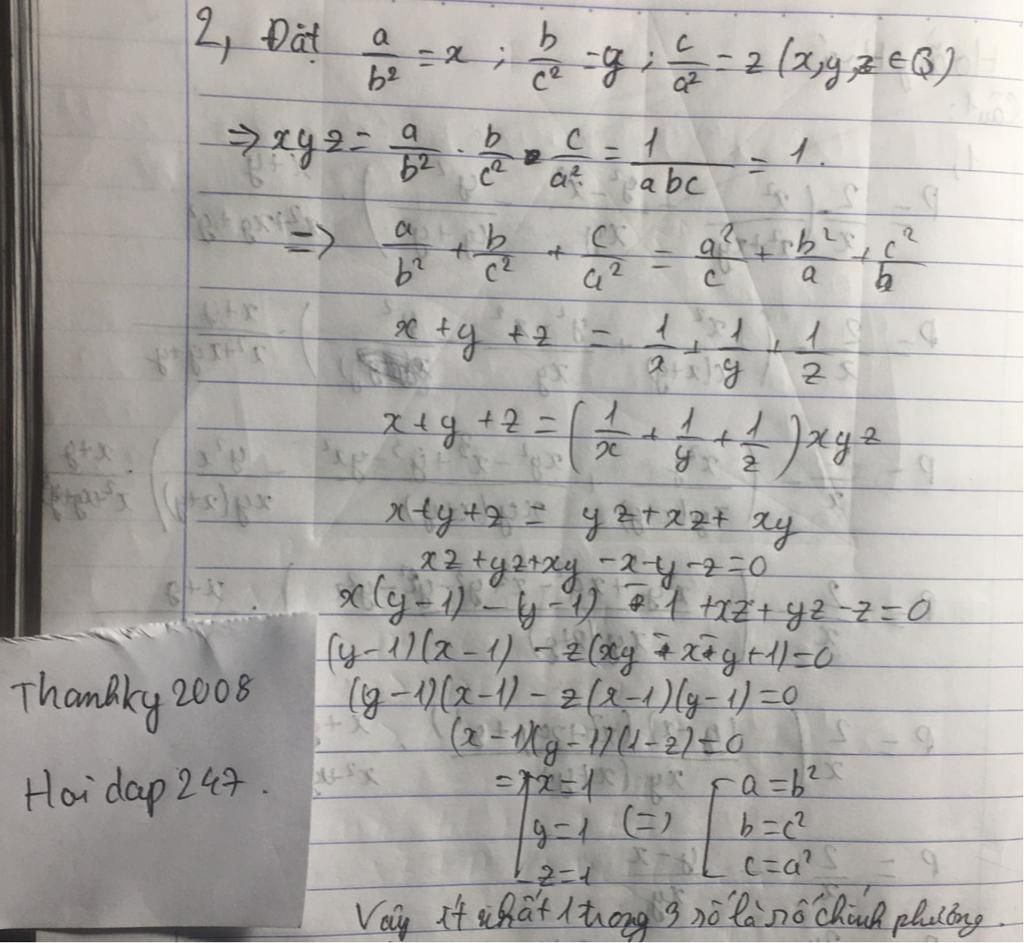 2, Đặt a/b² = x ; b/c² = y ; c/a² = z (x,y,z ∈ Q)
⇒ xyz = a/b² . b/c² . c/a² = 1/abc = 1.
⇒ a/b² + b/c² + c/a² = a²/c + b²/a + c²/b
x + y + z = 1/x + 1/y + 1/z
x + y + z = (1/x + 1/y + 1/z) xyz
x + y + z = yz + xz + xy
xz + yz + xy - x - y - z = 0
x(y-1) - (y-1) - 1 + xz + yz - z = 0
(y-1)(x-1) - z(xy - x - y + 1) = 0
(y-1)(x-1) - z(x-1)(y-1) = 0
(x-1)(y-1)(1-z) = 0
=> [ x = 1 [ a = b²
y = 1 (=) b = c²
z = 1 c = a²
Vậy ít nhất 1 trong 3 số là số chính phương.
Thanhky2008
Hoidap247.